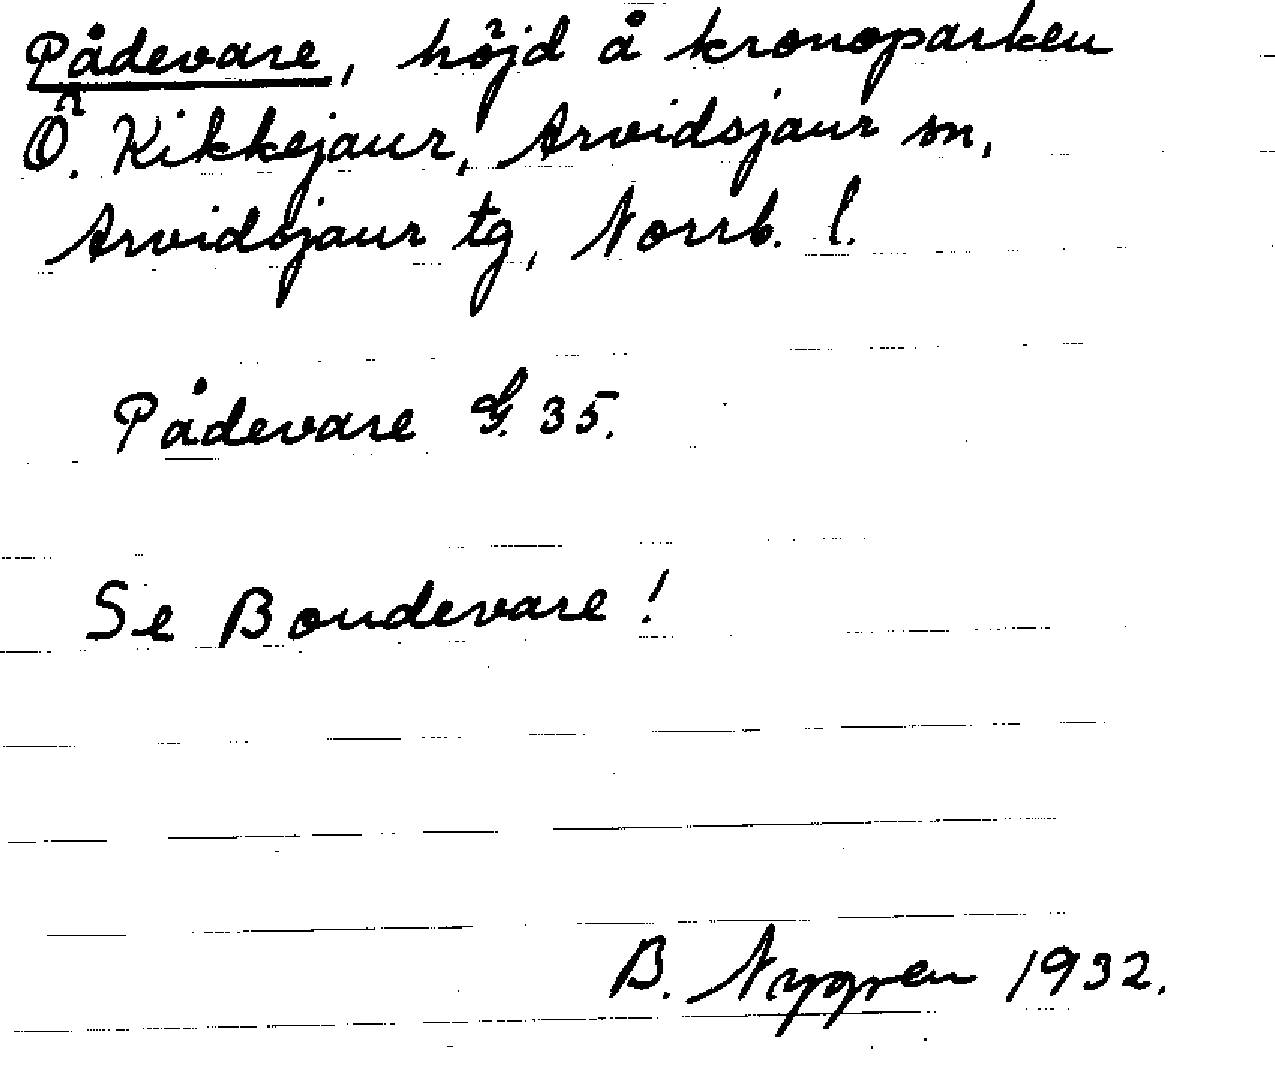 Pådevare, höjd å kronoparken
Ö. Kikkejaur, Arvidsjaur sn,
Arvidsjaur tg, Norrb. l.
Pådevare G. 35.
Se Boudevare!
B. Nygren 1932.